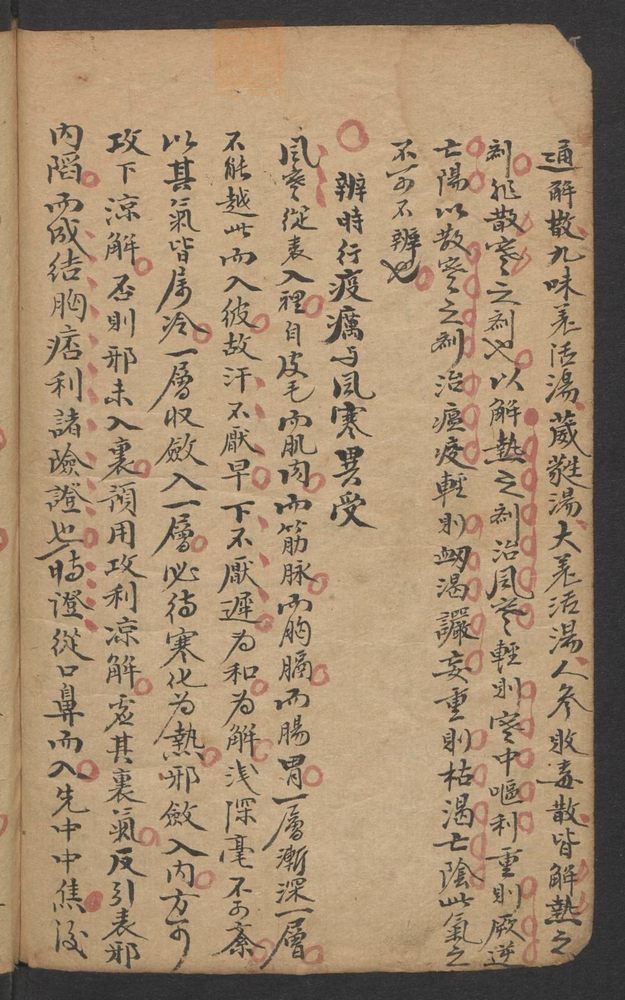 通解散九味羌活湯葳蕤湯大羌活湯人參敗毒散皆解熱之
劑非散寒之劑也以解熱之劑治風寒輕則寒中嘔利重則厥逆
亡陽以散寒之劑治瘟疫輕則衂渴讝妄重則枯渴亡陰此氣之
不可不辨也
辨時行疫癘与風寒異受
風寒從表入裡自皮毛而肌肉而筋脉而胸膈而腸胃一層漸深一層
不能越此而入彼故汗不厭早下不厭遲为和为解浅深毫不可紊
以其氣皆属冷一層収斂入一層必待寒化为熱邪斂入内方可
攻下凉解否則邪未入裏預用攻利凉解虚其裏氣反引表邪
内陷而成結胸痞利諸險證也時證從口鼻而入先中中焦後